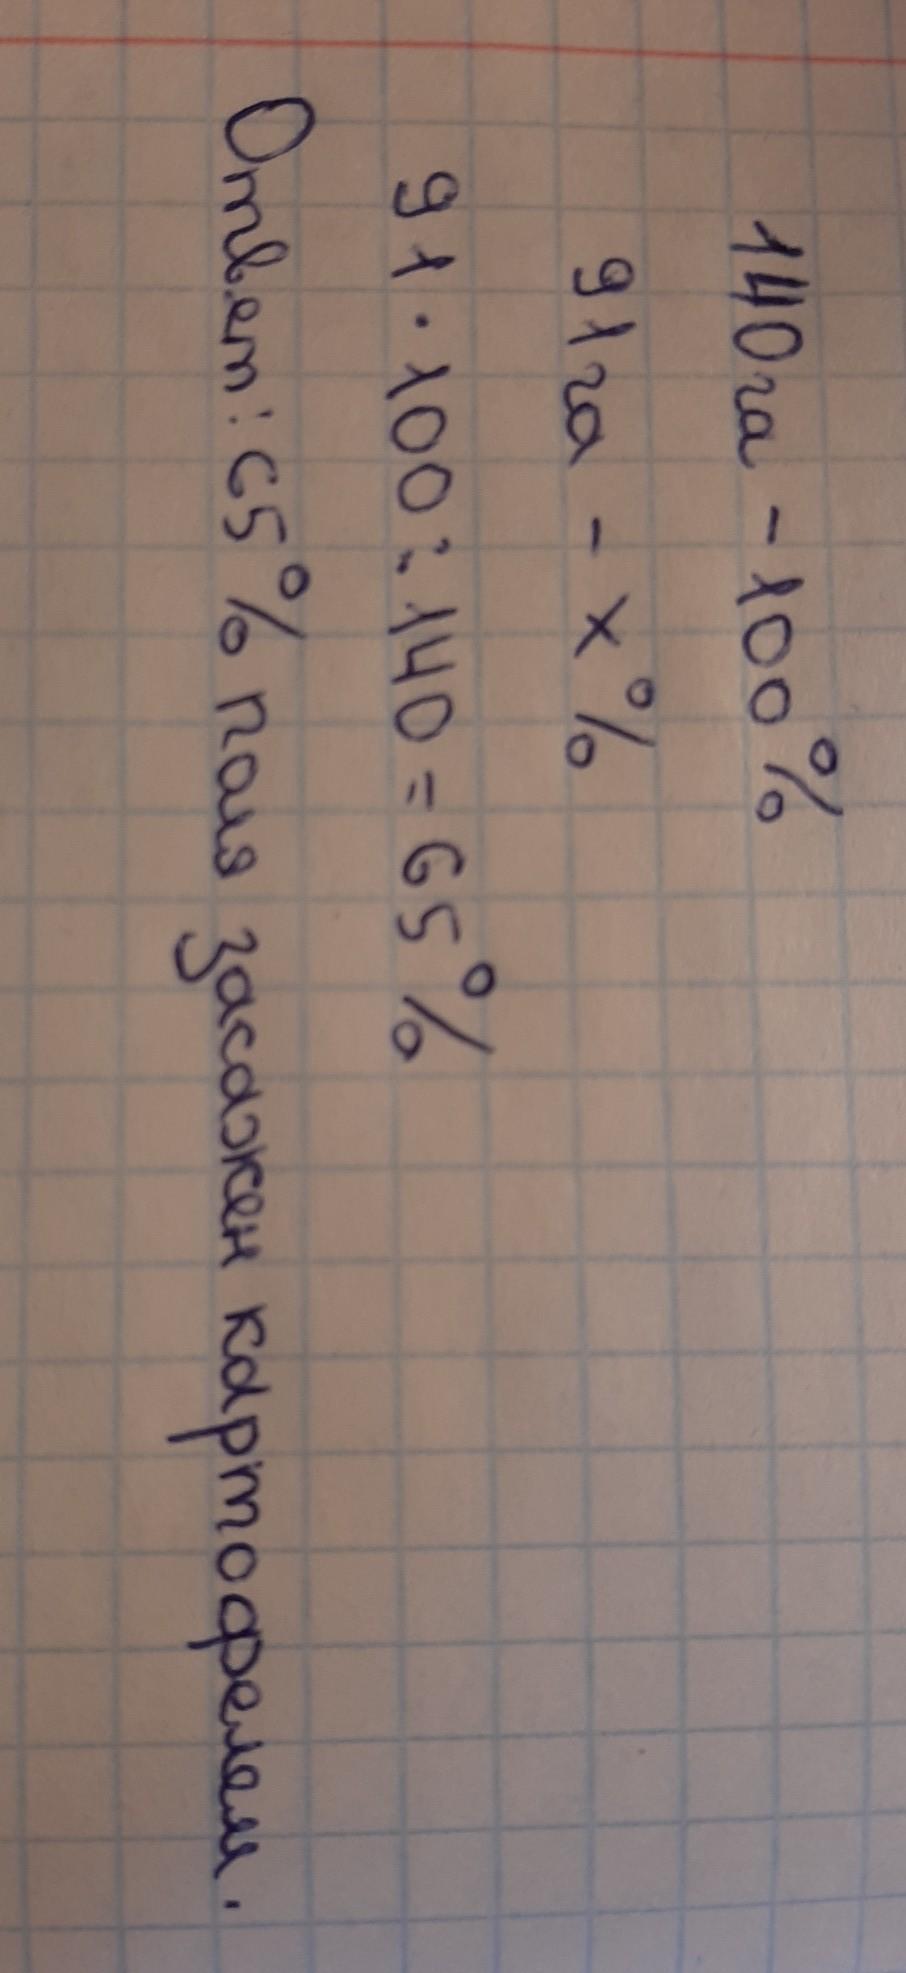 140га - 100%
91га - х%
91·100:140=65%
Ответ: 65% поля засажен картофелем.